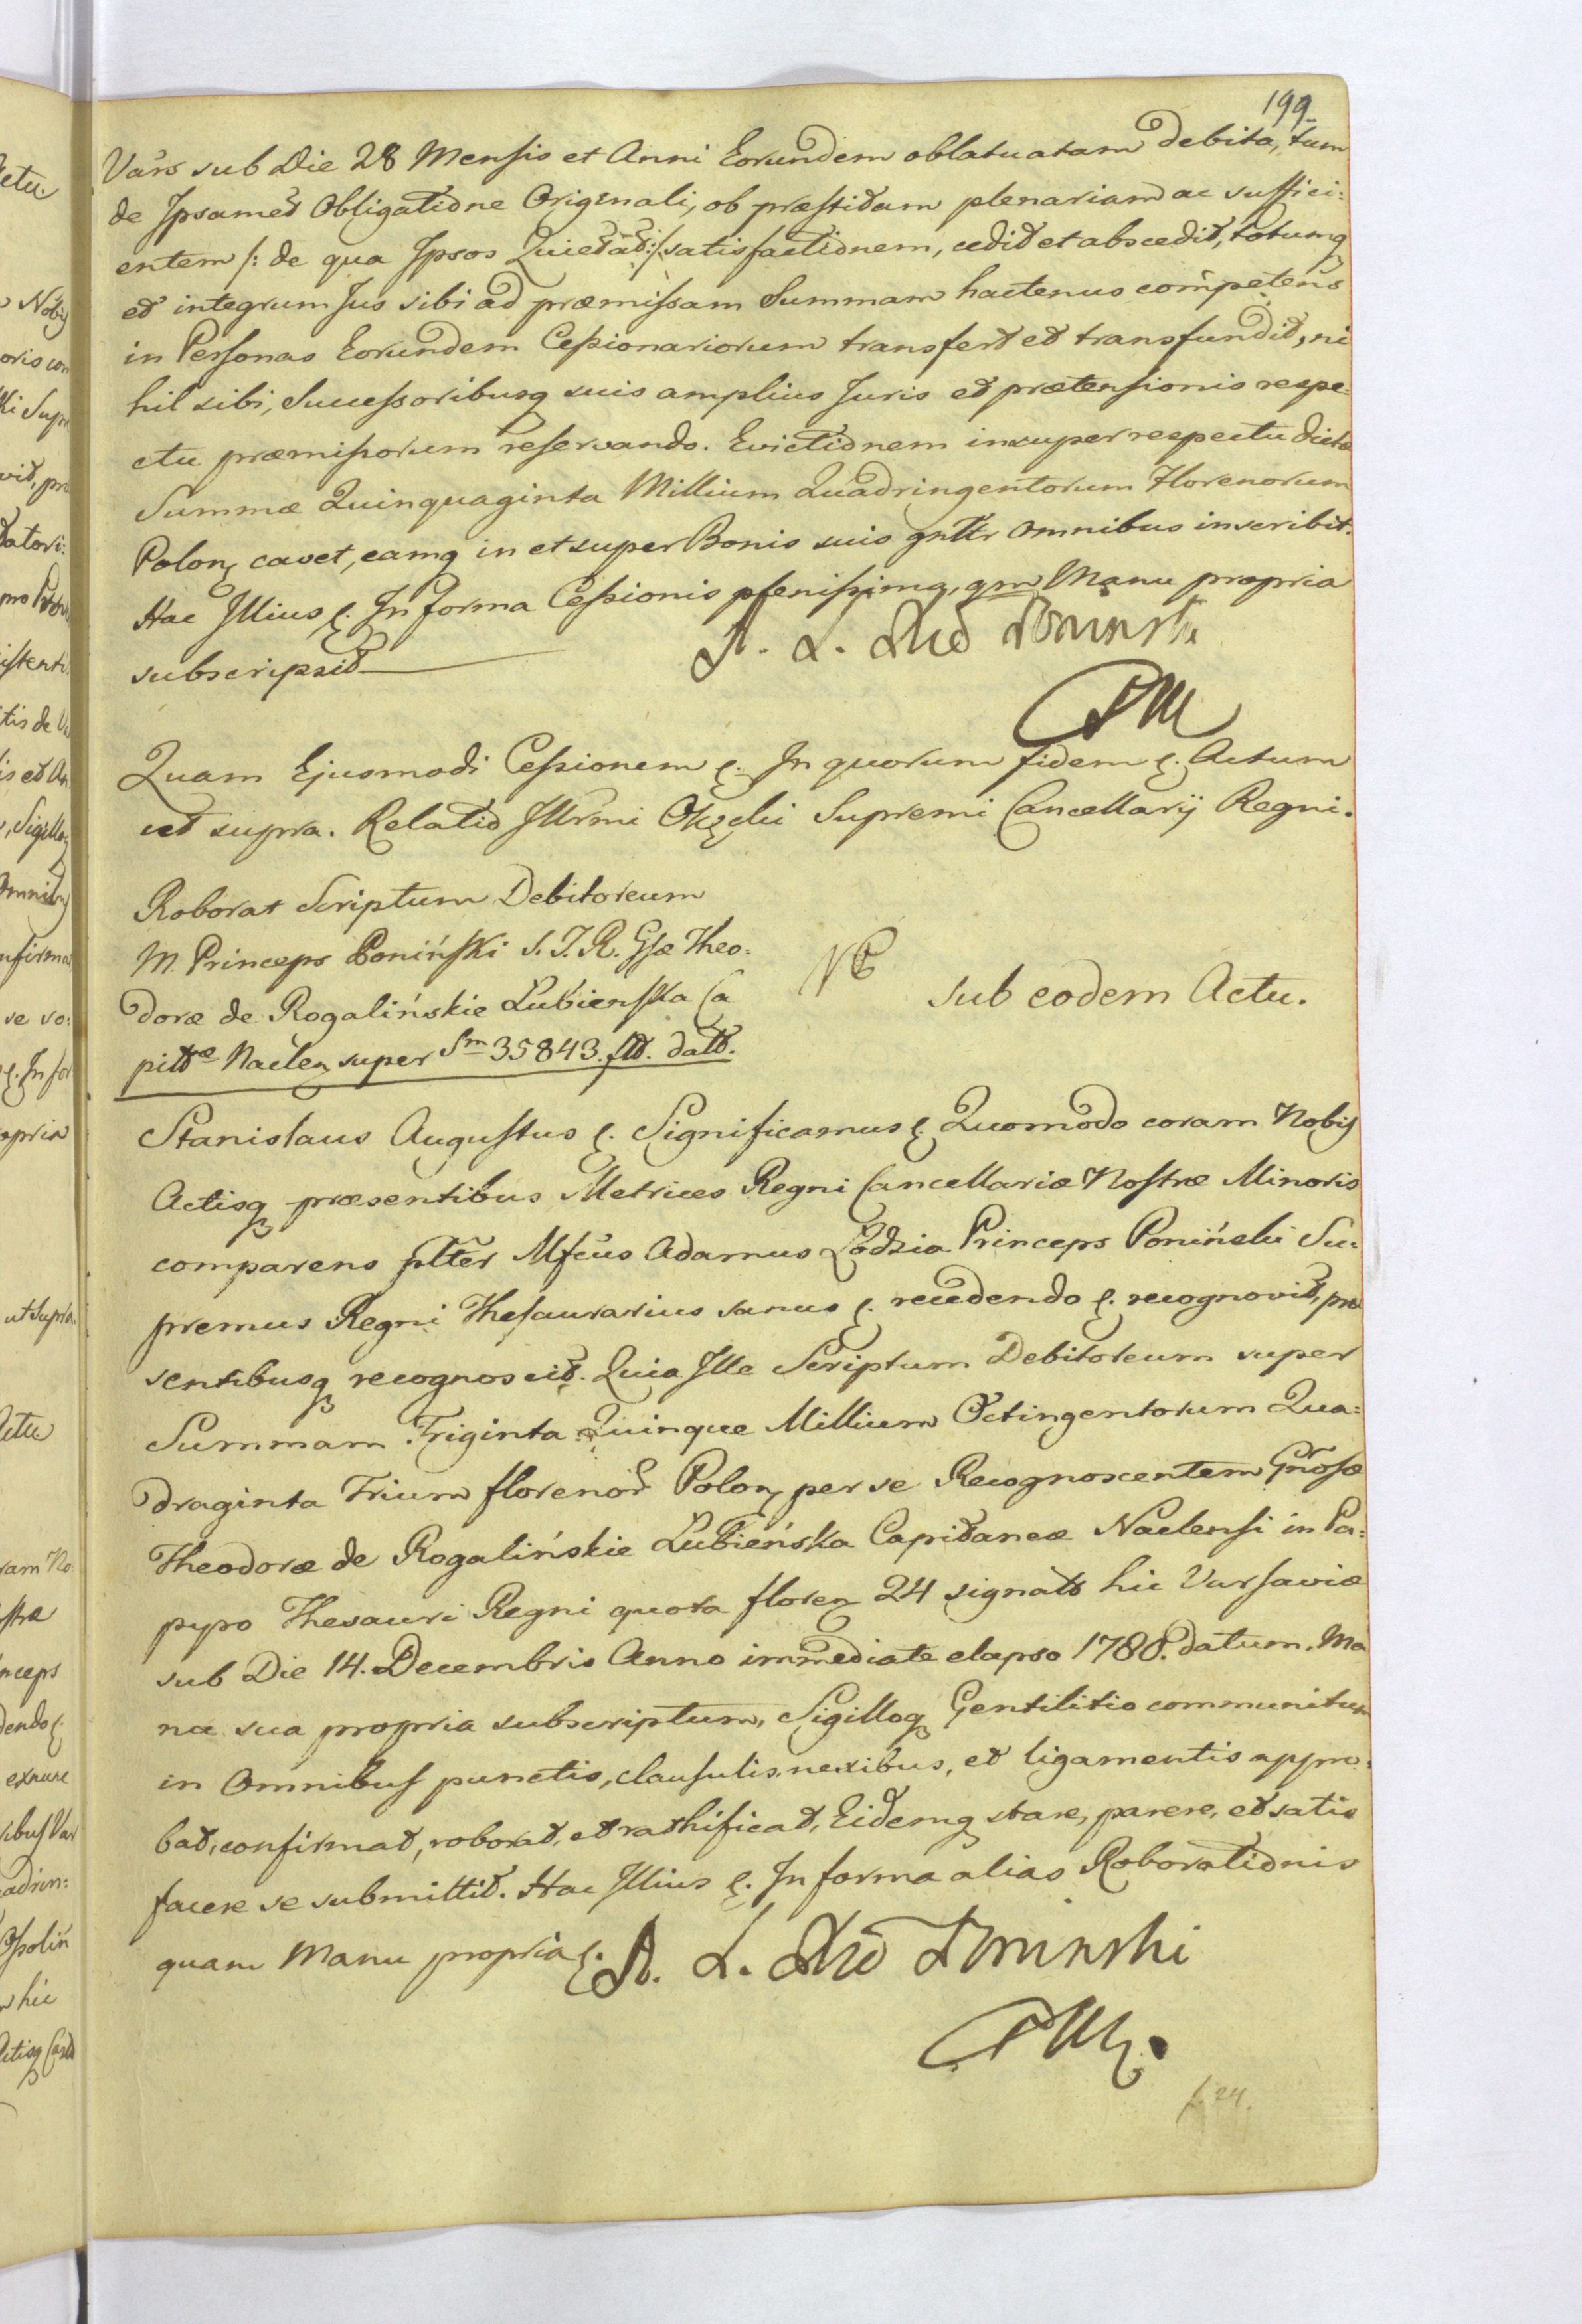 199.
Vars sub Die 28 Mensis et Anni Eorundem oblatuatam debita, tum
de Ipsamet Obligatione Originali, ob præstitam plenariam ac suffici:
entem /: de qua Ipsos Quietat :/ satisfactionem, cedit et abscedit, totumq
et integrum Jus sibi ad præmissam Summam hactenus competens
in Personas Eorundem Cessionariorum transfert et transfundit, ni
hil sibi, Successoribusq suis amplius Juris et prætensionis respe-
ctu præmissorum reservando. Evictionem insuper respectu dictæ
Summæ Quinquaginta Millium Quadringentorum Florenorum
Polon cavet, eamq in et super Bonis suis gnltr Omnibus inscribit.
Hac Illius &. In forma Cessionis plenissima, qm Manu propria
subscripsit
A. L. Poninski
Quam Ejusmodi Cessionem &. In quorum fidem &. Actum
ut supra. Relatio Illrmi Okęcki Supremi Cancellarij Regni.
Roborat Scriptum Debitoreum
M. Princeps Poniński S. T. R. Gsæ Theo:
doræ de Rogalińskie Łubieńska Ca
pitæ Naclen super Sm 35843. flo. dato.
NB
sub eodem Actu.
Stanislaus Augustus &. Significamus &. Quomodo coram Nobis
Actisq præsentibus Metrices Regni Cancellariæ Nostræ Minoris
comparens pltér Mfcus Adamus Łodzia Princeps Poniński Su:
premus Regni Thesaurarius sanus &. recedendo &. recognovit, præ
sentibusq recognoscit. Quia Ille Scriptum Debitoreum super
Summam Triginta Quinque Millium Octingentorum Qua:
draginta Trium florenor Polon per se Recognoscentem Gnosæ
Theodoræ de Rogalińskie Łubieńska Capitaneæ Naclensi in Pa:
pyro Thesauri Regni quota floren 24 signato hic Varsaviæ
sub Die 14. Decembris Anno immediate elapso 1788. datum. Ma
nu sua propria subscriptum, Sigilloq Gentilitio communitum
in Omnibus punctis, clausulis, nexibus, et ligamentis appro:
bat, confirmat, roborat, et rathificat, Eidemq stare, parere, et satis
facere se submittit. Hac Illius &. In forma alias Roborationis
quam Manu propria &. A. L. Poninski
f. 24.